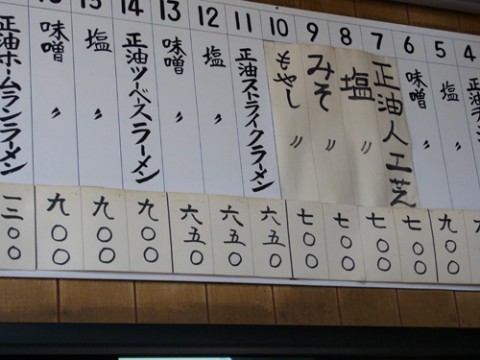 4
正油
5
塩 〃
6
味噌 〃
九〇〇
7
正油人工芝
七〇〇
8
塩 〃
七〇〇
9
みそ 〃
七〇〇
10
もやし 〃
七〇〇
11
正油ストライクラーメン
六五〇
12
塩 〃
六五〇
13
味噌 〃
六五〇
14
正油ツーベースラーメン
九〇〇
塩 〃
九〇〇
味噌 〃
九〇〇
正油ホームランラーメン
〇〇